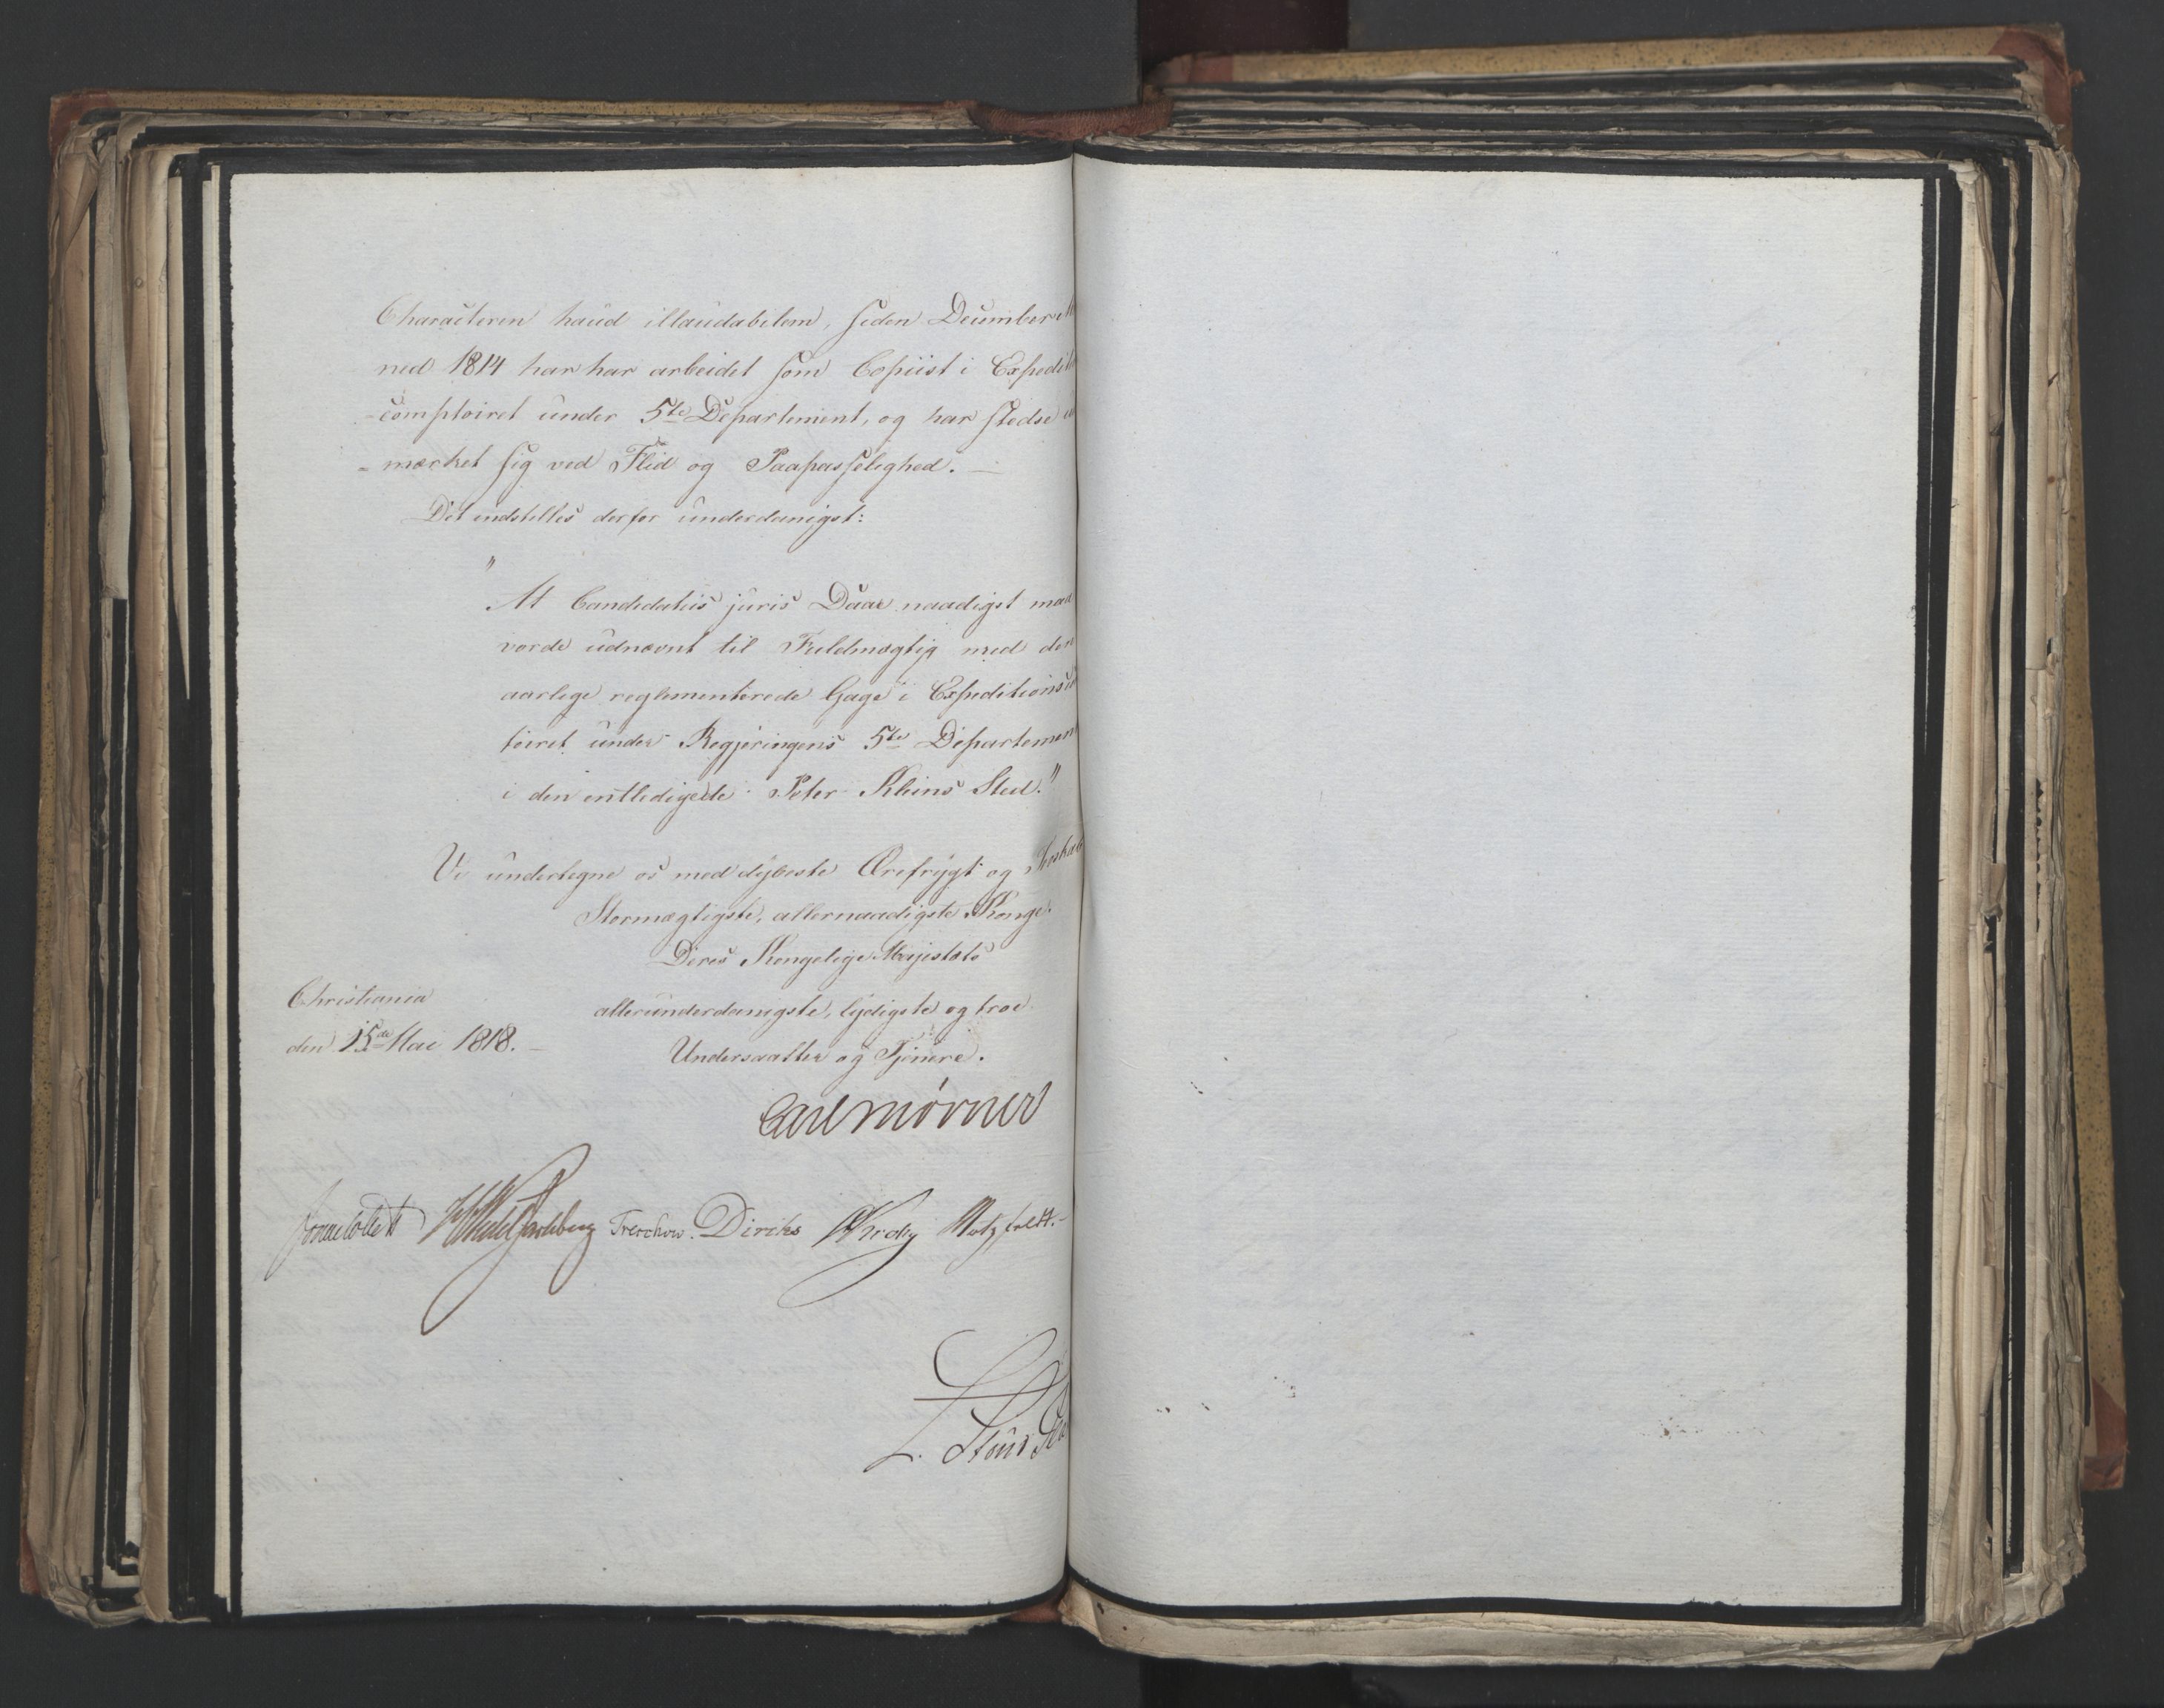 Characteren haud illaudabilem, siden December M
ned 1814 har har arbeidet som Copiist i Expediti
-comptoiret under 5te Departement, og har stedse u
=mærket sig ved Flid og Paapasselighed. —
Det indstilles derfor underdanigst:
"
At Candidatus juris Daae naadigst maa
vorde udnævnt til Fuldmægtig med den
aarlige reglementerede Gage i Expeditionsc
toiret under Regjeringens 5te Departemen
i den entledigede Peter Kleins Sted."
Vi undertegne os med dybeste Ærefrygt og Troskab
Stormægtigste, allernaadigste Konge!
Deres Kongelige Majestæts
allerunderdanigste, lydigste og troe
Undersaatter og Tjenere.
Christiania
den 15de Mai 1818. —
Carl Mörner
Jonas Collett HWedelJarlsberg Treschow. Diriks Krohg Motzfeldt.
L.